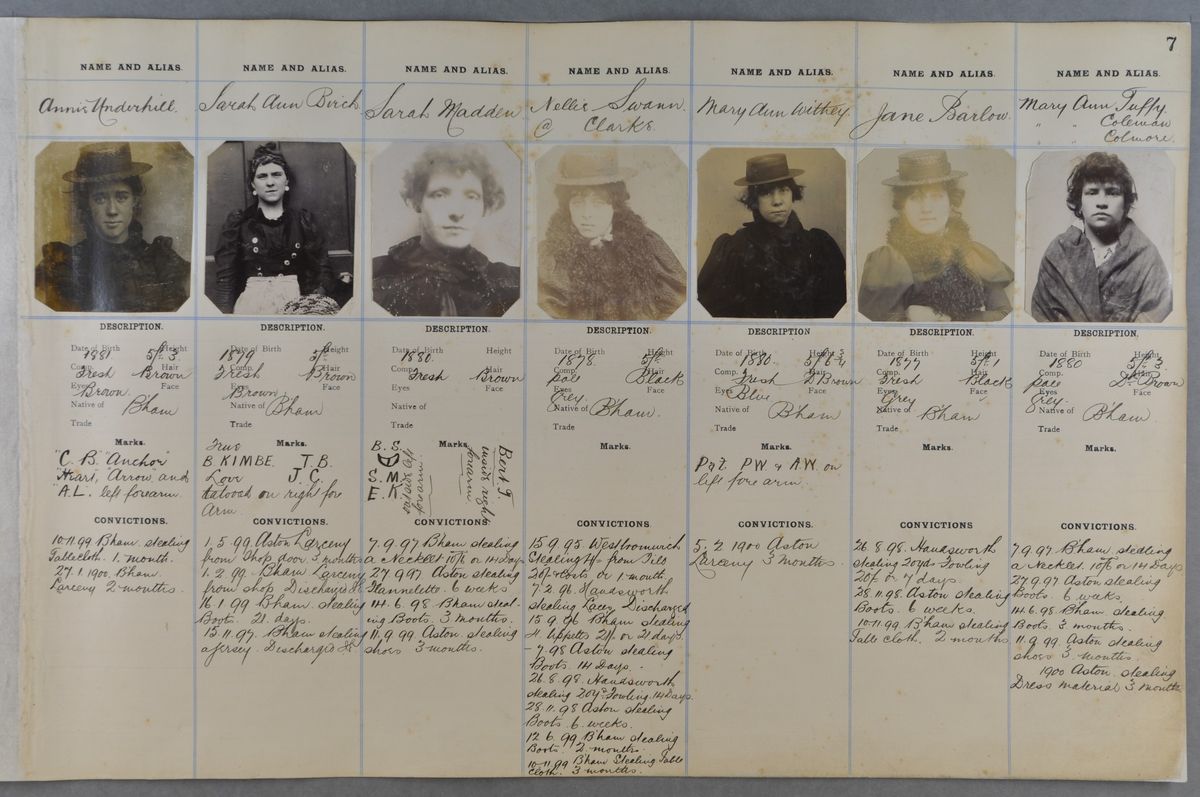 7
NAME AND ALIAS.
Annie Underhill.
DESCRIPTION.
Date of Birth Height
1881 5ft 3
Comp. Hair
Fresh Brown
Eyes Face
Brown
Native of B'ham
Trade
Marks.
"C. B." Anchor
"Heart, Arrow" and
"A.L." left forearm.
CONVICTIONS.
10.11.99 B'ham. stealing
Tablecloth. 1. month.
27.1.1900. B'ham.
Larceny 2 months.
NAME AND ALIAS.
Sarah Ann Birch
DESCRIPTION.
Date of Birth Height
1879 5ft
Comp. Hair
Fresh Brown
Eyes Face
Brown
Native of B'ham
Trade
Marks.
True
B KIMBE. T.B.
Love J.C.
tatooed on right fore
Arm.
CONVICTIONS.
1.5.99 Aston Larceny
from shop door 3 months
1.2.99. B'ham Larceny
from shop Discharged
16.1.99 B'ham. stealing
Boots. 21. days.
15.11.97. B'ham stealing
a Jersey. Discharged
NAME AND ALIAS.
Sarah Madden
DESCRIPTION.
Date of Birth Height
1880.
Comp. Hair
Fresh Brown
Eyes Face
Native of
Trade
Marks.
B. S.
S. M
E. K
outside left
forearm.
Bert T.
inside right
forearm
CONVICTIONS.
7.9.97 B'ham stealing
a Necklet 10/6 or 14 days
27.9.97 Aston stealing
Flannelette. 6 weeks
14.6.98 B'ham steal-
ing Boots. 3 months.
11.9.99 Aston. stealing
shoes 3 months.
NAME AND ALIAS.
Nellie Swann
@ Clarke.
DESCRIPTION.
Date of Birth Height
1878 5ft
Comp. Hair
Pale Black
Eyes Face
Grey
Native of B'ham.
Trade
Marks.
CONVICTIONS.
15.9.95 Westbromwich
Stealing from Till
20/- & Costs or 1 month.
7.2.96. Handsworth
stealing Lacey. Discharged
15.9.96 B'ham stealing
4 Uppers 21/- or 21 days.
- 7.98 Aston stealing
Boots. 14 Days.
26.8.98. Handsworth
stealing 20yds Towling. 14 Days.
28.11.98 Aston stealing
Boots. 6. weeks.
12.6.99 B'ham stealing
Boots. 2 months.
10.11.99 B'ham Stealing Table
cloth. 3 months.
NAME AND ALIAS.
Mary Ann Withey.
DESCRIPTION.
Date of Birth Height
1880
Comp. Hair
Fresh D Brown
Eyes Face
Blue
Native of B'ham
Trade
Marks.
Pat. P.W. & A.W. on
left fore arm.
CONVICTIONS
5.2.1900 Aston
Larceny 3 months.
NAME AND ALIAS.
Jane Barlow.
DESCRIPTION.
Date of Birth Height
1877 5ft 1
Comp. Hair
Fresh Black
Eyes Face
Grey
Native of B'ham
Trade
Marks.
CONVICTIONS
26.8.98. Handsworth
stealing 20yds Towling
20/- or 7 days.
28.11.98 Aston stealing
Boots. 6 weeks.
10.11.99 B'ham stealing
Table cloth. 2 months
NAME AND ALIAS.
Mary Ann Tuffy.
" " Coleman
Colmore.
DESCRIPTION.
Date of Birth Height
1880 5ft 3.
Comp. Hair
Pale Dk. Brown
Eyes Face
Grey.
Native of B'ham
Trade
Marks.
CONVICTIONS
7.9.97 B'ham stealing
a Necklet. 10/6 or 14 Days
27.9.97 Aston stealing
Boots. 6 weeks.
14.6.98 B'ham. stealing
Boots. 3 months.
11.9.99 Aston stealing
shoes 3 months.
1900 Aston. stealing
Dress material 3 months